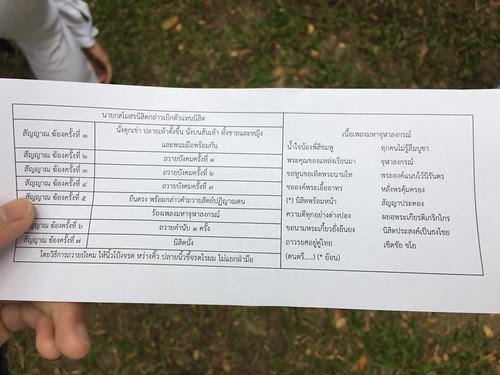 นายกสโมสรนิสิตกล่าวเบิกตัวแทนนิสิต
สัญญาณ ฆ้องครั้งที่ ๑ นั่งคุกเข่า ปลายเท้าตั้งขึ้น นั่งบนส้นเท้า ทั้งชายและหญิง
และพนมมือพร้อมกัน
สัญญาณ ฆ้องครั้งที่ ๒ ถวายบังคมครั้งที่ ๑
สัญญาณ ฆ้องครั้งที่ ๓ ถวายบังคมครั้งที่ ๒
สัญญาณ ฆ้องครั้งที่ ๔ ถวายบังคมครั้งที่ ๓
สัญญาณ ฆ้องครั้งที่ ๕ ยืนตรง พร้อมกล่าวคำถวายสัตย์ปฏิญาณตน
ร้องเพลงมหาจุฬาลงกรณ์
สัญญาณ ฆ้องครั้งที่ ๖ ถวายคำนับ ๑ ครั้ง
สัญญาณ ฆ้องครั้งที่ ๗ นิสิตนั่ง
โดยวิธีการถวายบังคม ให้นิ้วโป้งจรด หว่างคิ้ว ปลายนิ้วชี้จรดไรผม ไม่แยกฝ่ามือ
เนื้อเพลงมหาจุฬาลงกรณ์
น้ำใจน้องพี่สีชมพู ทุกคนไม่รู้ลืมบูชา
พระคุณของแหล่งเรียนมา จุฬาลงกรณ์
ขอทูนขอเทิดพระนามไท พระองค์แนบไว้นิรันดร
ขอองค์พระเอื้ออาทร หลั่งพรคุ้มครอง
(*) นิสิตพร้อมหน้า สัญญาประคอง
ความดีทุกอย่างต่างปอง ผยองพระเกียรติเกริกไกร
ขอนามพระเกี้ยวยั่งยืนยง นิสิตประสงค์เป็นธงไชย
ถาวรยศอยู่คู่ไทย เชิดชัย ชโย
(ดนตรี.....) (* ย้อน)